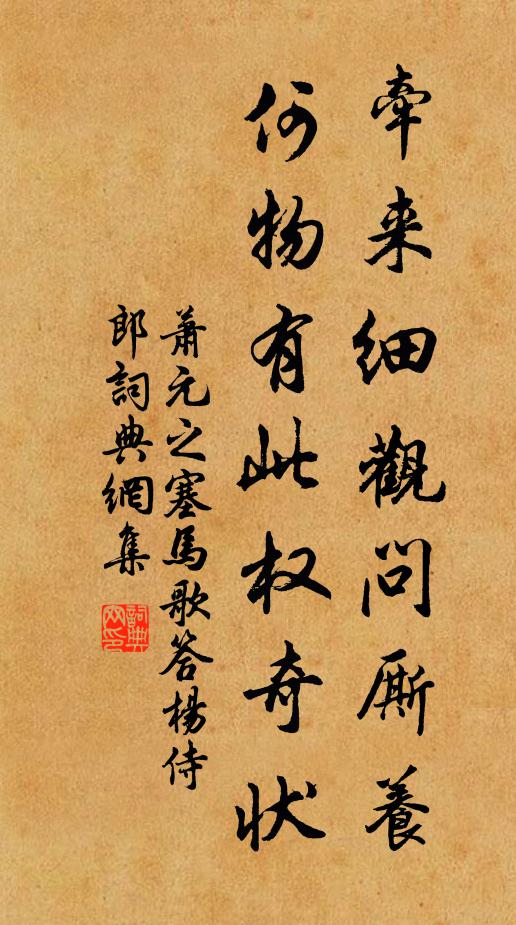 牽来细觀问厮養
何物有此权奇状
萧元之塞馬歌答楊侍
郎詞典網集
詞典网印